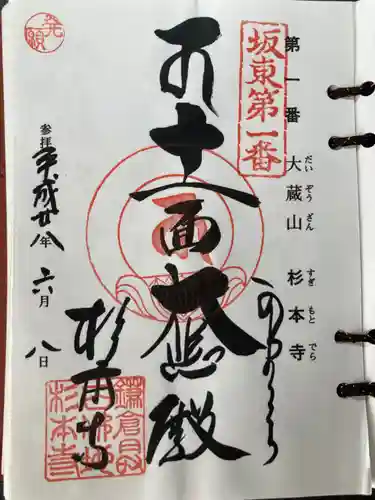 第一番 大蔵山 杉本寺
だいぞうざん すぎもとでら
坂東第一番
十一面大悲殿
杉本寺
参拝 平成廿八年 六月 八日
発願
鎌倉
杉本寺